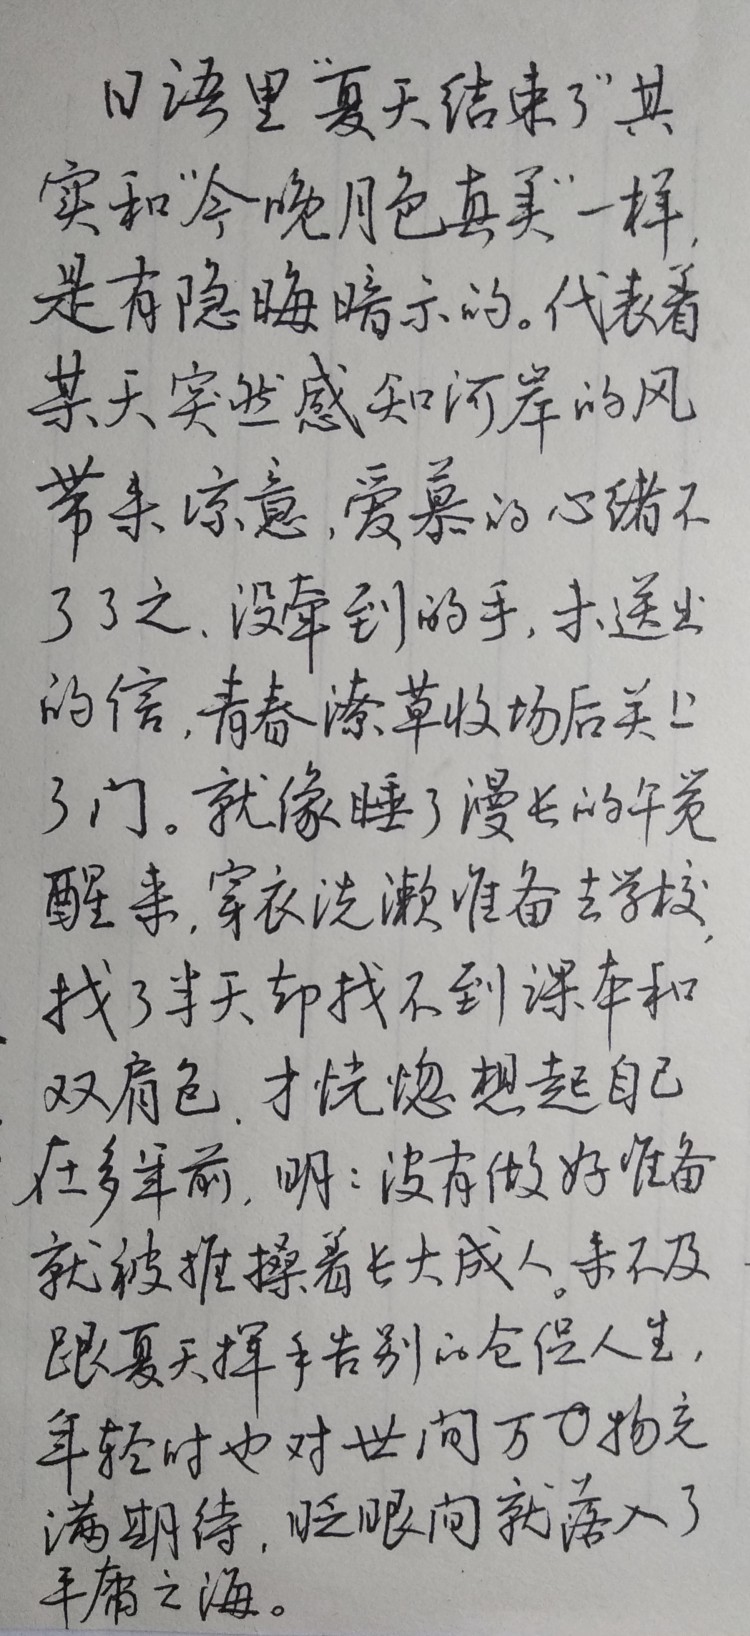 日语里“夏天结束了”其
实和“今晚月色真美”一样,
是有隐晦暗示的。代表着
某天突然感知河岸的风
带来凉意,爱慕的心绪不
了了之、没牵到的手,未送出
的信,青春潦草收场后关上
了门。就像睡了漫长的午觉
醒来,穿衣洗漱准备去学校,
找了半天却找不到课本和
双肩包、才恍惚想起自己
在多年前,明:没有做好准备
就被推搡着长大成人。来不及
跟夏天挥手告别的仓促人生,
年轻时也对世间万物充
满期待,眨眼间就落入了
平庸之海。